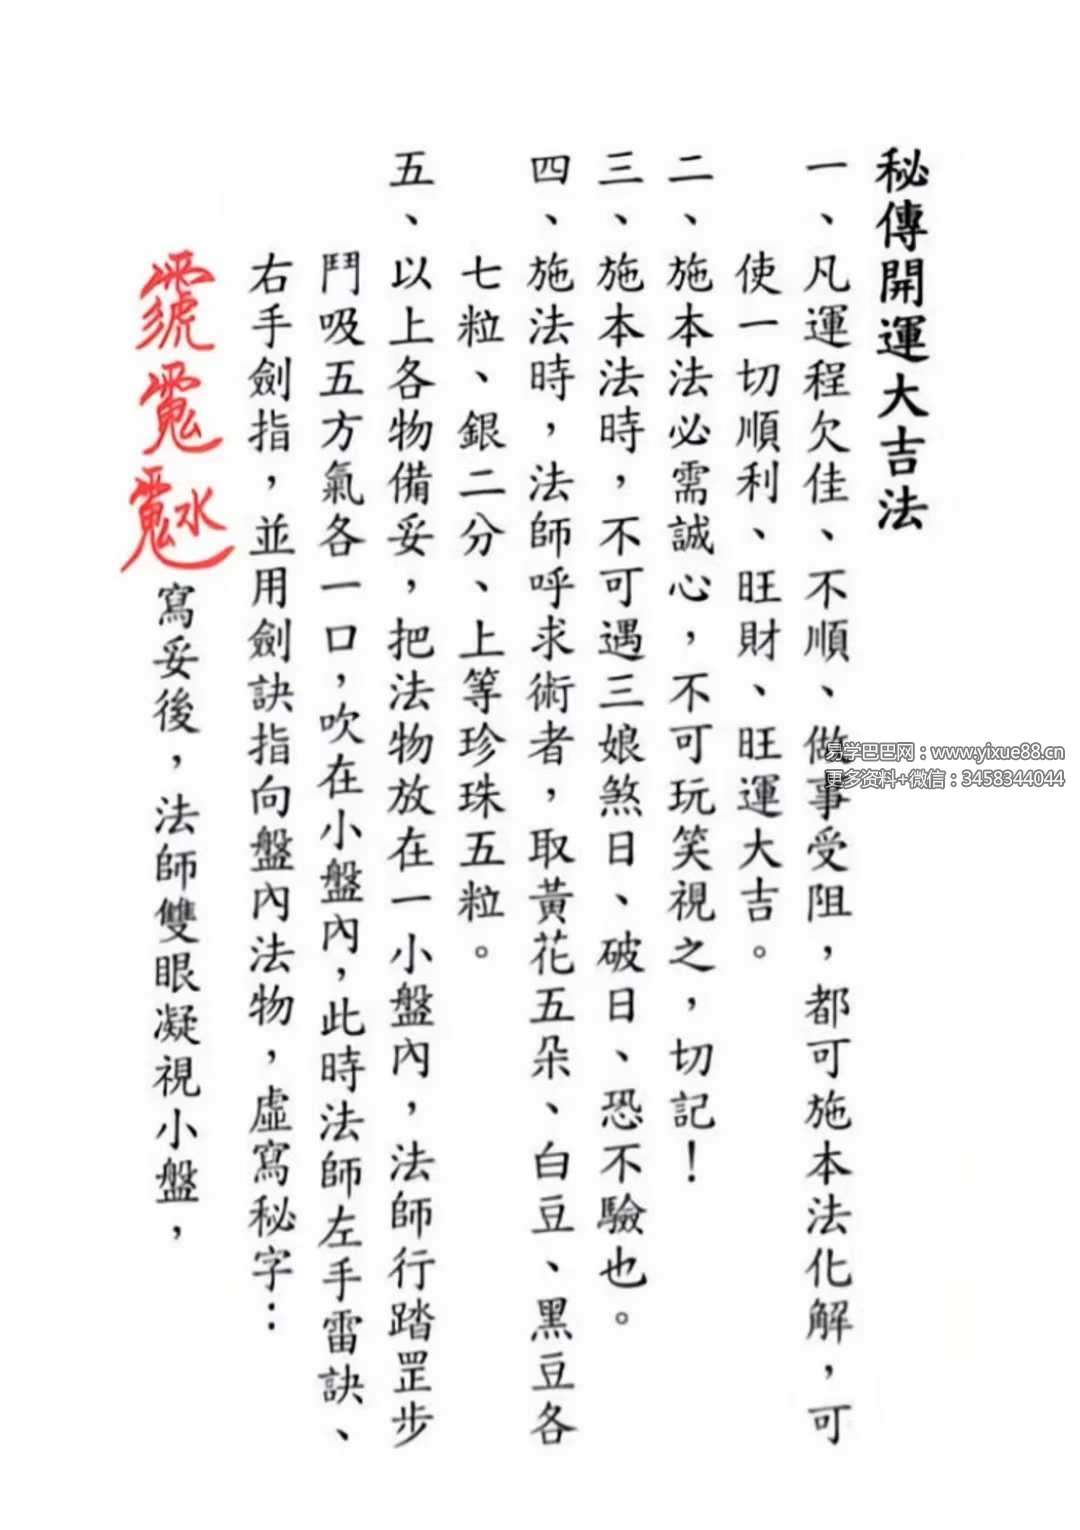 秘傳開運大吉法
一、凡運程欠佳、不順、做事受阻，都可施本法化解，可
使一切順利、旺財、旺運大吉。
二、施本法必需誠心，不可玩笑視之，切記！
三、施本法時，不可遇三娘煞日、破日、恐不驗也。
四、施法時，法師呼求術者，取黃花五朵、白豆、黑豆各
七粒、銀二分、上等珍珠五粒。
五、以上各物備妥，把法物放在一小盤內，法師行踏罡步
鬥吸五方氣各一口，吹在小盤內，此時法師左手雷訣、
右手劍指，並用劍訣指向盤內法物，虛寫秘字：
寫妥後，法師雙眼凝視小盤，
易学巴巴网：www.yixue88.cn
更多资料+微信：3458344044